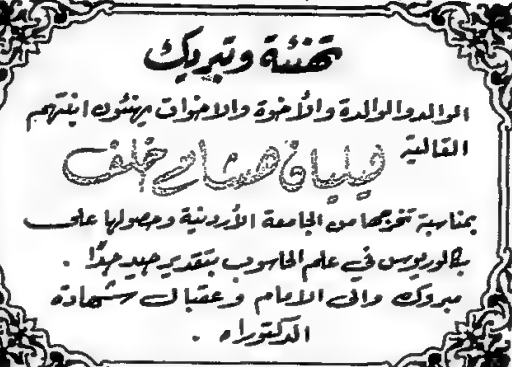 تهنئة وتبريك
الوالد والوالدة والأخوة والاخوات يهنئون ابنتهم
الغالية فيليان هشام خلف
بمناسبة تخرجها من الجامعة الأردنية وحصولها على
بكالوريوس في علم الحاسوب بتقدير جيد جدًا .
مبروك والى الامام وعقبال شهادة
الدكتوراه .